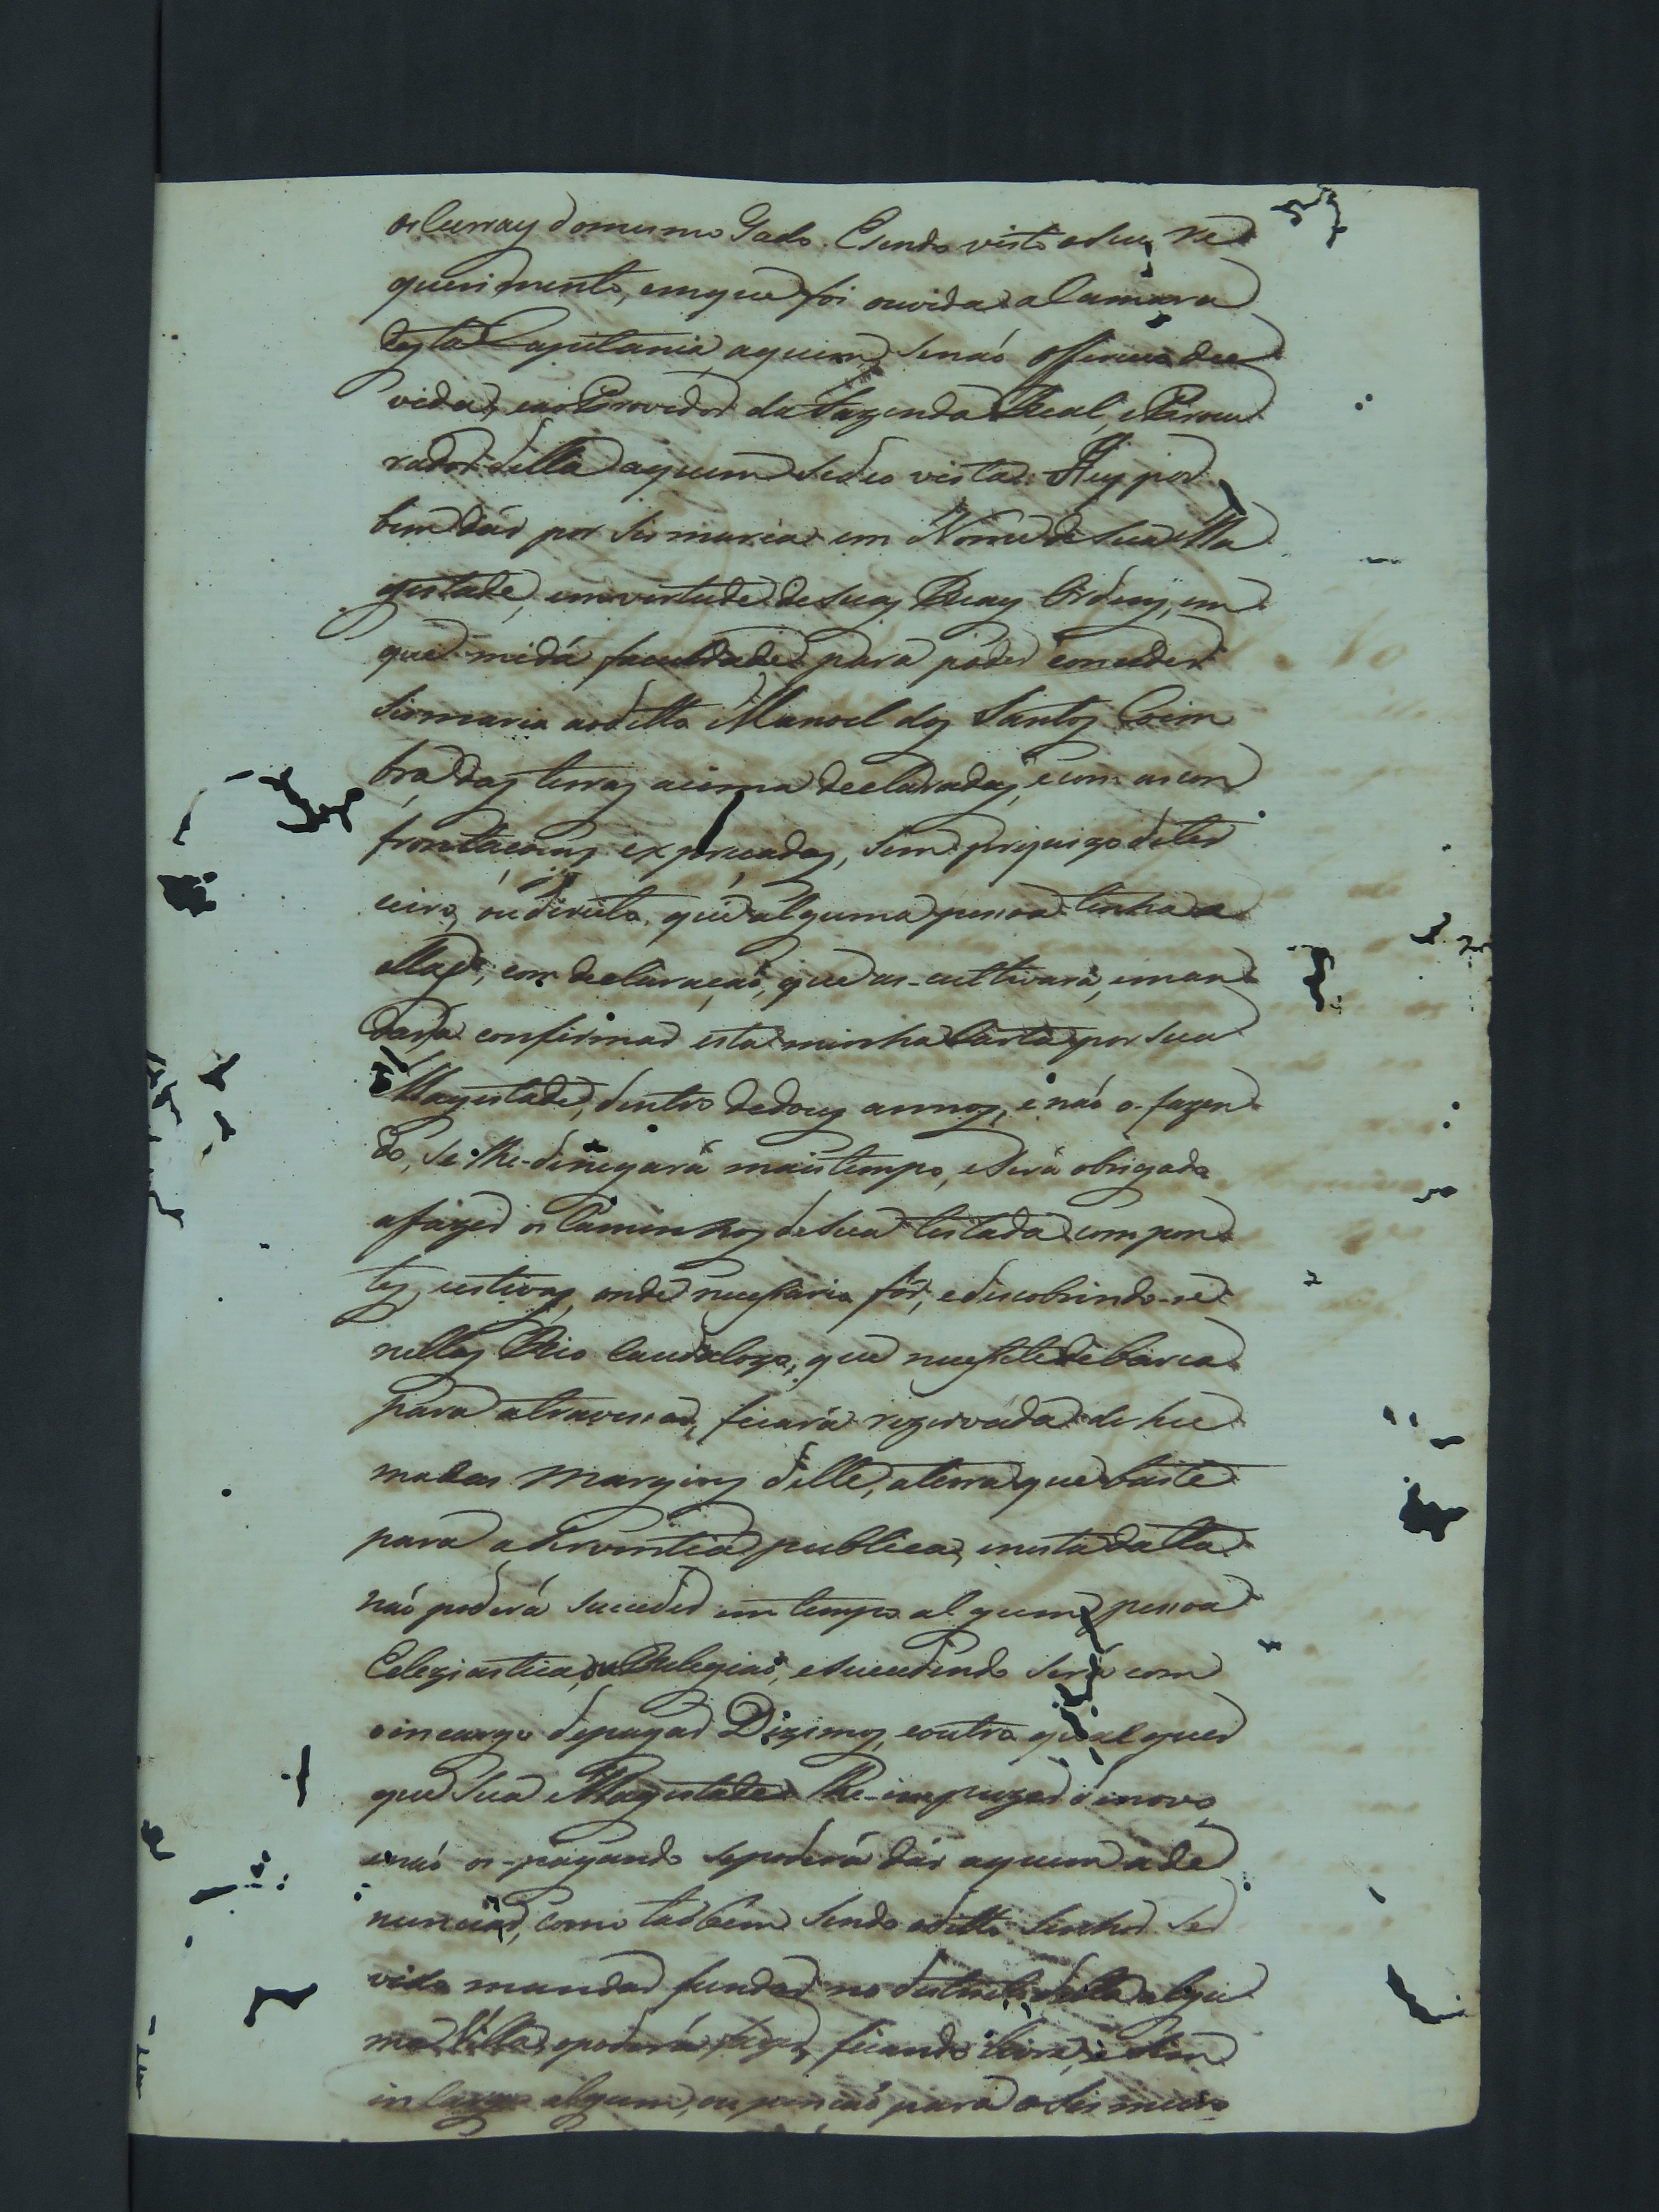 os Curray do mesmo Gado. Esendo visto o seu re
querimento, em que foi ouvida a Camara
desta Capitania, a quem senaõ offereceo du
vida, e ao Provedor da Fazenda Real, e Procu
rador della a quem se deo vista: Hey por
bem dár por sismaria em Nome de Sua Ma
gestade, em vertude de suas Reaes Ordens, em
que me dá faculdade para poder conceder
sismaria ao ditto Manoel dos Santos Coim
bra das terras acima declaradas, e com as con
frontaçoens expreçadas, sem prejuizo de ter
ceiro, ou direito, que alguma pessoa tenha a
ellas, com declaraçaõ, que as-cultivará, e man
dará confirmar esta minha Carta por Sua
Magestade, dentro de dous annos, e naõ o-fazen
do, se-lhe-denegará mais tempo, e será obrigado
a fazer os Caminhos de sua testada com pon
tes, e estivas, onde necessario fôr, e descobrindo-se
nellas Rio Caudelozo, que necessite de barca
para atravessar, ficará rezervada de hu
ma das margens delle, a terra que baste
para a serventia publica, e nesta datta
naõ poderá succeder em tempo algum pessoa
Eclesiastica, ou Relegiaõ, e succedendo será com
o encargo de pagar Dizimos, e outro qualquer
que Sua Magestade lhe-impuzer de novo,
e naõ os-pagando se poderá dár a quem a de
nunciar, como tambem sendo o ditto Senhor ser
vido mandar fundar no destricto della algu
ma Villa, o poderá fazer, ficando livre, e sem
incargo algum, ou pençaõ para o sismeiro